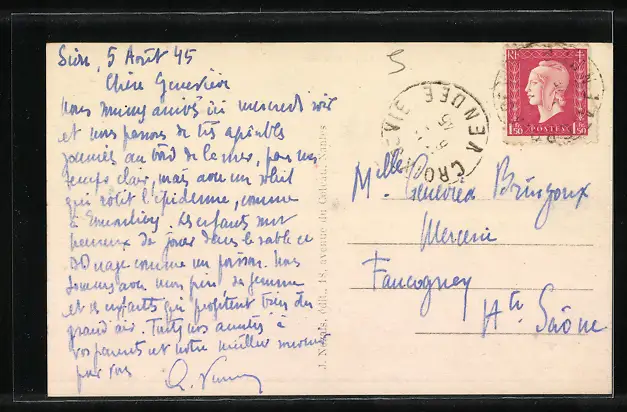 Sion, 5 Août 45
Chère Geneviève
Nous sommes arrivés ici mercredi soir
et nous passons de très agréables
journées au bord de la mer, par un
temps clair, mais avec un soleil
qui rôtit l'épiderme, comme
à Les enfants sont
heureux de jouer dans le sable et
nage comme un poisson. Nous
sommes avec mon père, sa femme
et ses enfants qui profitent bien du
grand air. Toutes nos amitiés à
vos parents et notre meilleur souvenir
pour vous
J. Nozais, édit., 18, avenue du Coteau, Nantes
5
CROIX VENDÉE
RF
1F50 POSTES 1F50
Mlle Geneviève
Mercerie
Faucogney
Hte Saône